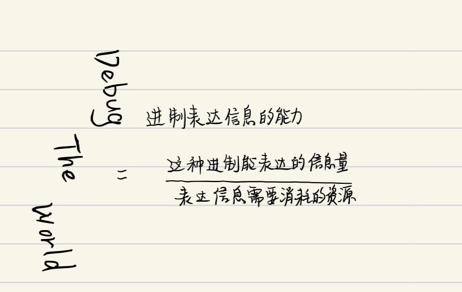 Debug
The
World
进制表达信息的能力
=
这种进制能表达的信息量
表达信息需要消耗的资源